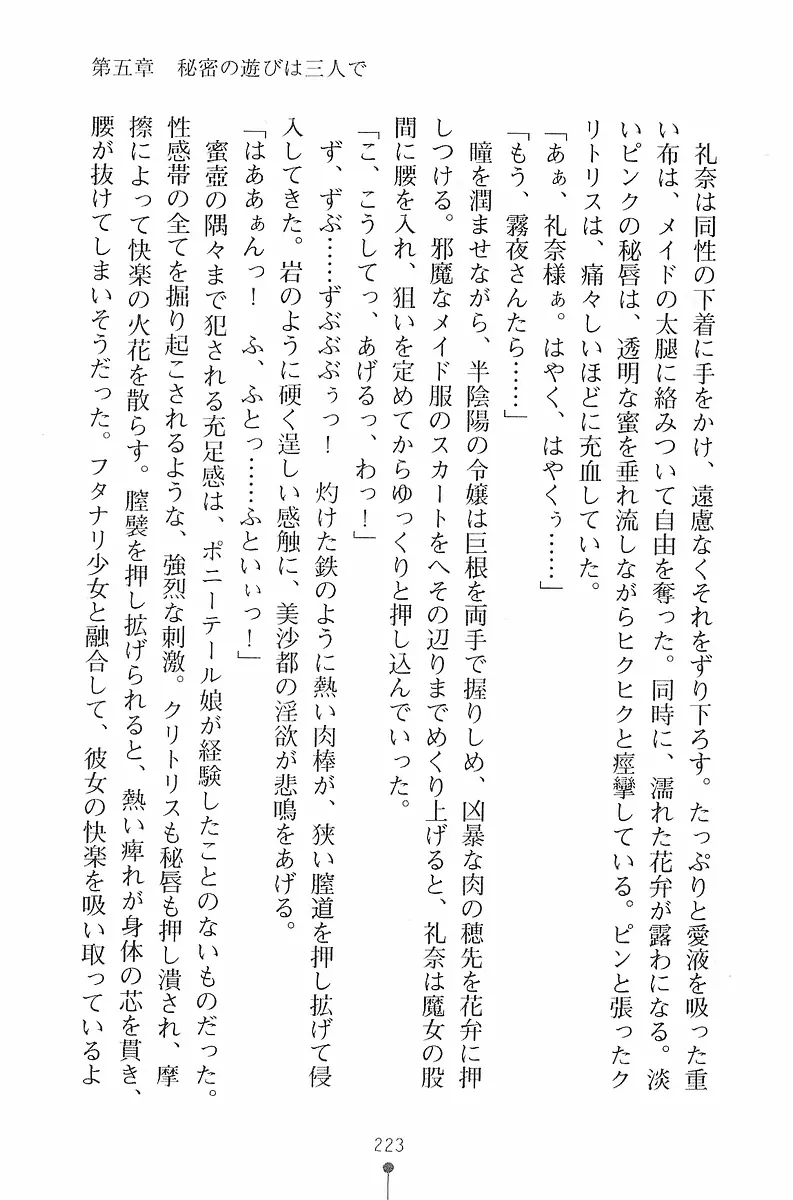 第五章　秘密の遊びは三人で
　礼奈は同性の下着に手をかけ、遠慮なくそれをずり下ろす。たっぷりと愛液を吸った重
い布は、メイドの太腿に絡みついて自由を奪った。同時に、濡れた花弁が露わになる。淡
いピンクの秘唇は、透明な蜜を垂れ流しながらヒクヒクと痙攣している。ピンと張ったク
リトリスは、痛々しいほどに充血していた。
「あぁ、礼奈様ぁ。はやく、はやくぅ……」
「もう、霧夜さんたら……」
　瞳を潤ませながら、半陰陽の令嬢は巨根を両手で握りしめ、凶暴な肉の穂先を花弁に押
しつける。邪魔なメイド服のスカートをへその辺りまでめくり上げると、礼奈は魔女の股
間に腰を入れ、狙いを定めてからゆっくりと押し込んでいった。
「こ、こうしてっ、あげるっ、わっ！」
　ず、ずぶ……ずぶぶぶぅっ！　灼けた鉄のように熱い肉棒が、狭い膣道を押し拡げて侵
入してきた。岩のように硬く逞しい感触に、美沙都の淫欲が悲鳴をあげる。
「はああぁんっ！　ふ、ふとっ……ふといぃっ！」
　蜜壺の隅々まで犯される充足感は、ポニーテール娘が経験したことのないものだった。
性感帯の全てを掘り起こされるような、強烈な刺激。クリトリスも秘唇も押し潰され、摩
擦によって快楽の火花を散らす。膣襞を押し拡げられると、熱い痺れが身体の芯を貫き、
腰が抜けてしまいそうだった。フタナリ少女と融合して、彼女の快楽を吸い取っているよ
223